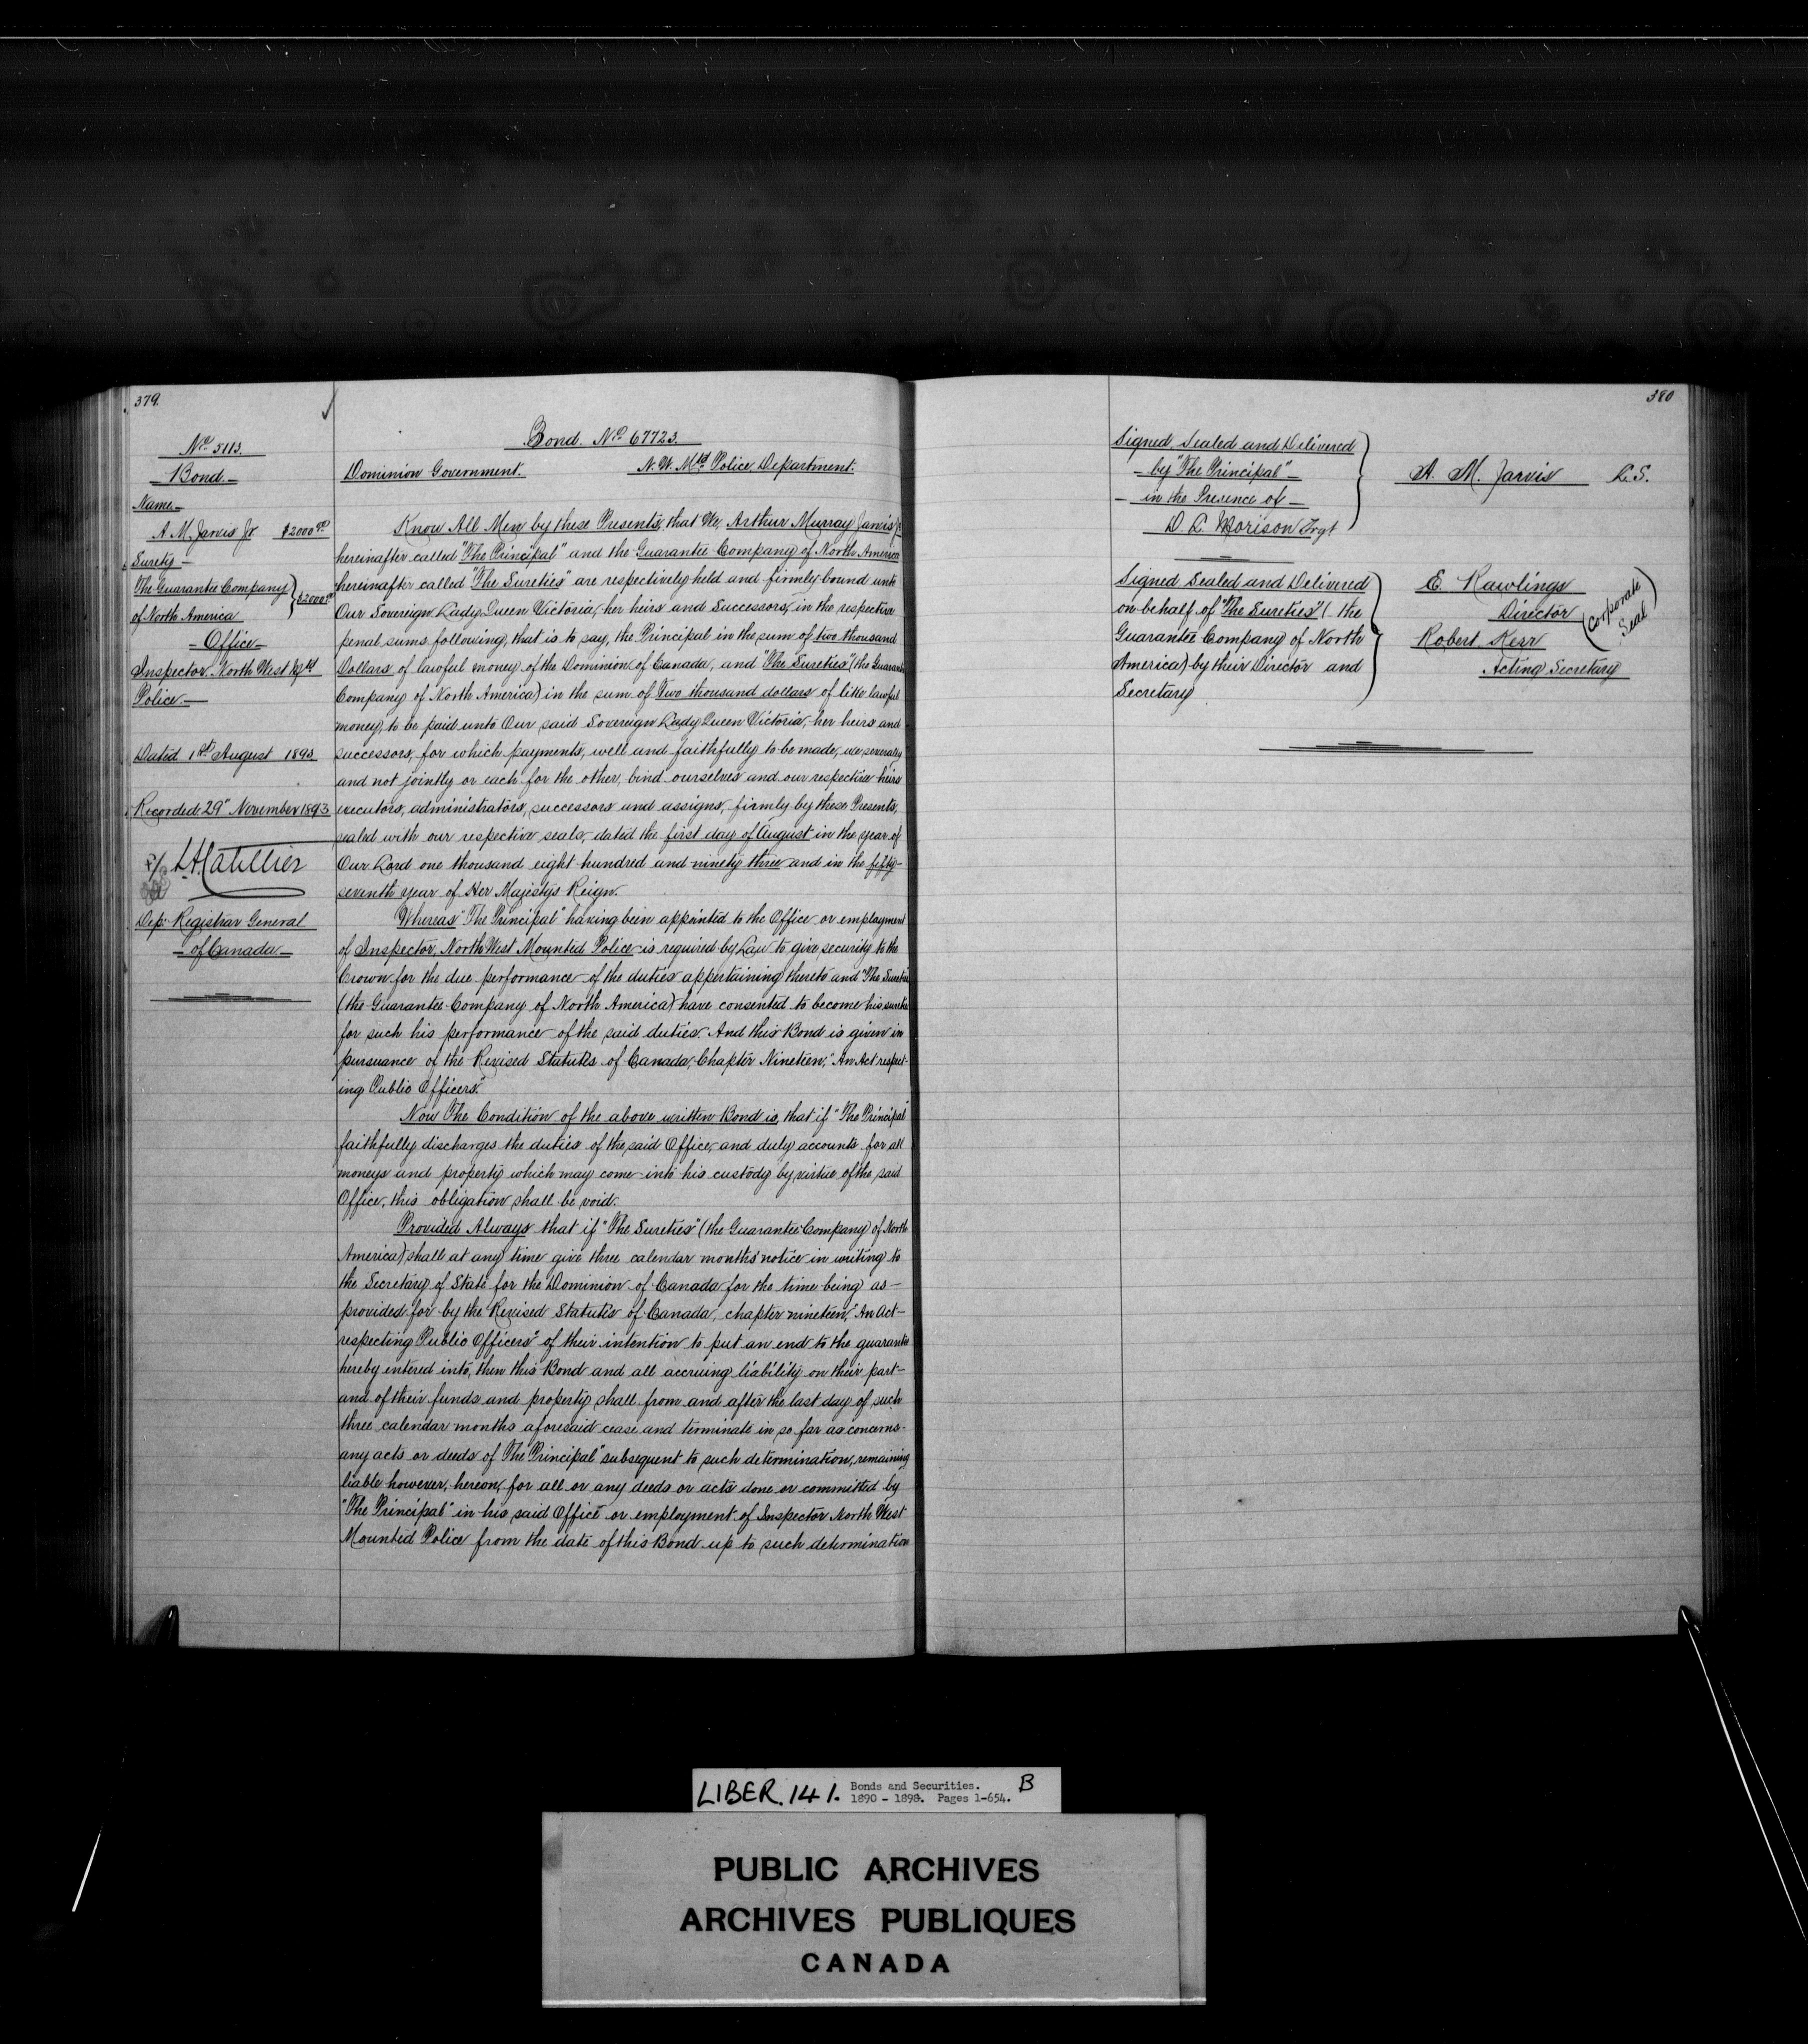 379.
No 5113.
Bond.
Name
A. M. Jarvis Jr $2000 00
Surety
The Guarantee Company } $2000 00
of North America
Office
Inspector North West Mtd
Police
Dated 1st August 1893
Recorded 29" November 1893
L. A. Catellier
Dep: Registrar General
of Canada
Bond. No 67723.
Dominion Government. N. W. Mtd Police Department.
Know All Men by these Presents, that We, Arthur Murray Jarvis Jr
hereinafter called "The Principal" and the Guarantee Company of North America
hereinafter called "The Sureties" are respectively held and firmly bound unto
Our Sovereign Lady Queen Victoria, her heirs and Successors, in the respective
penal sums following, that is to say, the Principal in the sum of two thousand
Dollars of lawful money of the Dominion of Canada, and "The Sureties" (the Guarantee
Company of North America) in the sum of Two thousand dollars of like lawful
money, to be paid unto Our said Sovereign Lady Queen Victoria, her heirs and
successors, for which payments, well and faithfully to be made, we severally
and not jointly or each for the other, bind ourselves and our respective heirs
executors, administrators, successors and assigns, firmly by these Presents,
sealed with our respective seals, dated the first day of August in the year of
Our Lord one thousand eight hundred and ninety three and in the fifty-
seventh year of Her Majestys Reign.
Whereas "The Principal" having been appointed to the Office or employment
of Inspector, North West Mounted Police is required by Law to give security to the
Crown for the due performance of the duties appertaining thereto and "The Sureties
(the Guarantee Company of North America) have consented to become his sureties
for such his performance of the said duties. And this Bond is given in
pursuance of the Revised Statutes of Canada, Chapter Nineteen, "An Act respect-
ing Public Officers".
Now The Condition of the above written Bond is, that if "The Principal"
faithfully discharges the duties of the said Office, and duly accounts for all
moneys and property which may come into his custody by virtue of the said
Office, this obligation shall be void.
Provided Always that if "The Sureties" (the Guarantee Company of North
America) shall at any time give three calendar months notice in writing to
the Secretary of State for the Dominion of Canada for the time being as
provided for by the Revised Statutes of Canada, chapter nineteen, "An Act
respecting Public Officers" of their intention to put an end to the guarantee
hereby entered into, then this Bond and all accruing liability on their part
and of their funds and property shall from and after the last day of such
three calendar months aforesaid cease and terminate in so far as concerns
any acts or deeds of "The Principal" subsequent to such determination, remaining
liable however, hereon, for all or any deeds or acts done or committed by
"The Principal" in his said Office or employment of Inspector North West
Mounted Police from the date of this Bond up to such determination
380
Signed Sealed and Delivered
by "The Principal"
in the Presence of
D. C. Morison Srgt
A. M. Jarvis L.S.
Signed Sealed and Delivered
on behalf of "The Sureties" (the
Guarantee Company of North
America) by their Director and
Secretary
E. Rawlings
Director
Robert Kerr
Acting Secretary
(Corporate
Seal)
LIBER. 141. Bonds and Securities. B
1890 - 1898. Pages 1-654.
PUBLIC ARCHIVES
ARCHIVES PUBLIQUES
CANADA